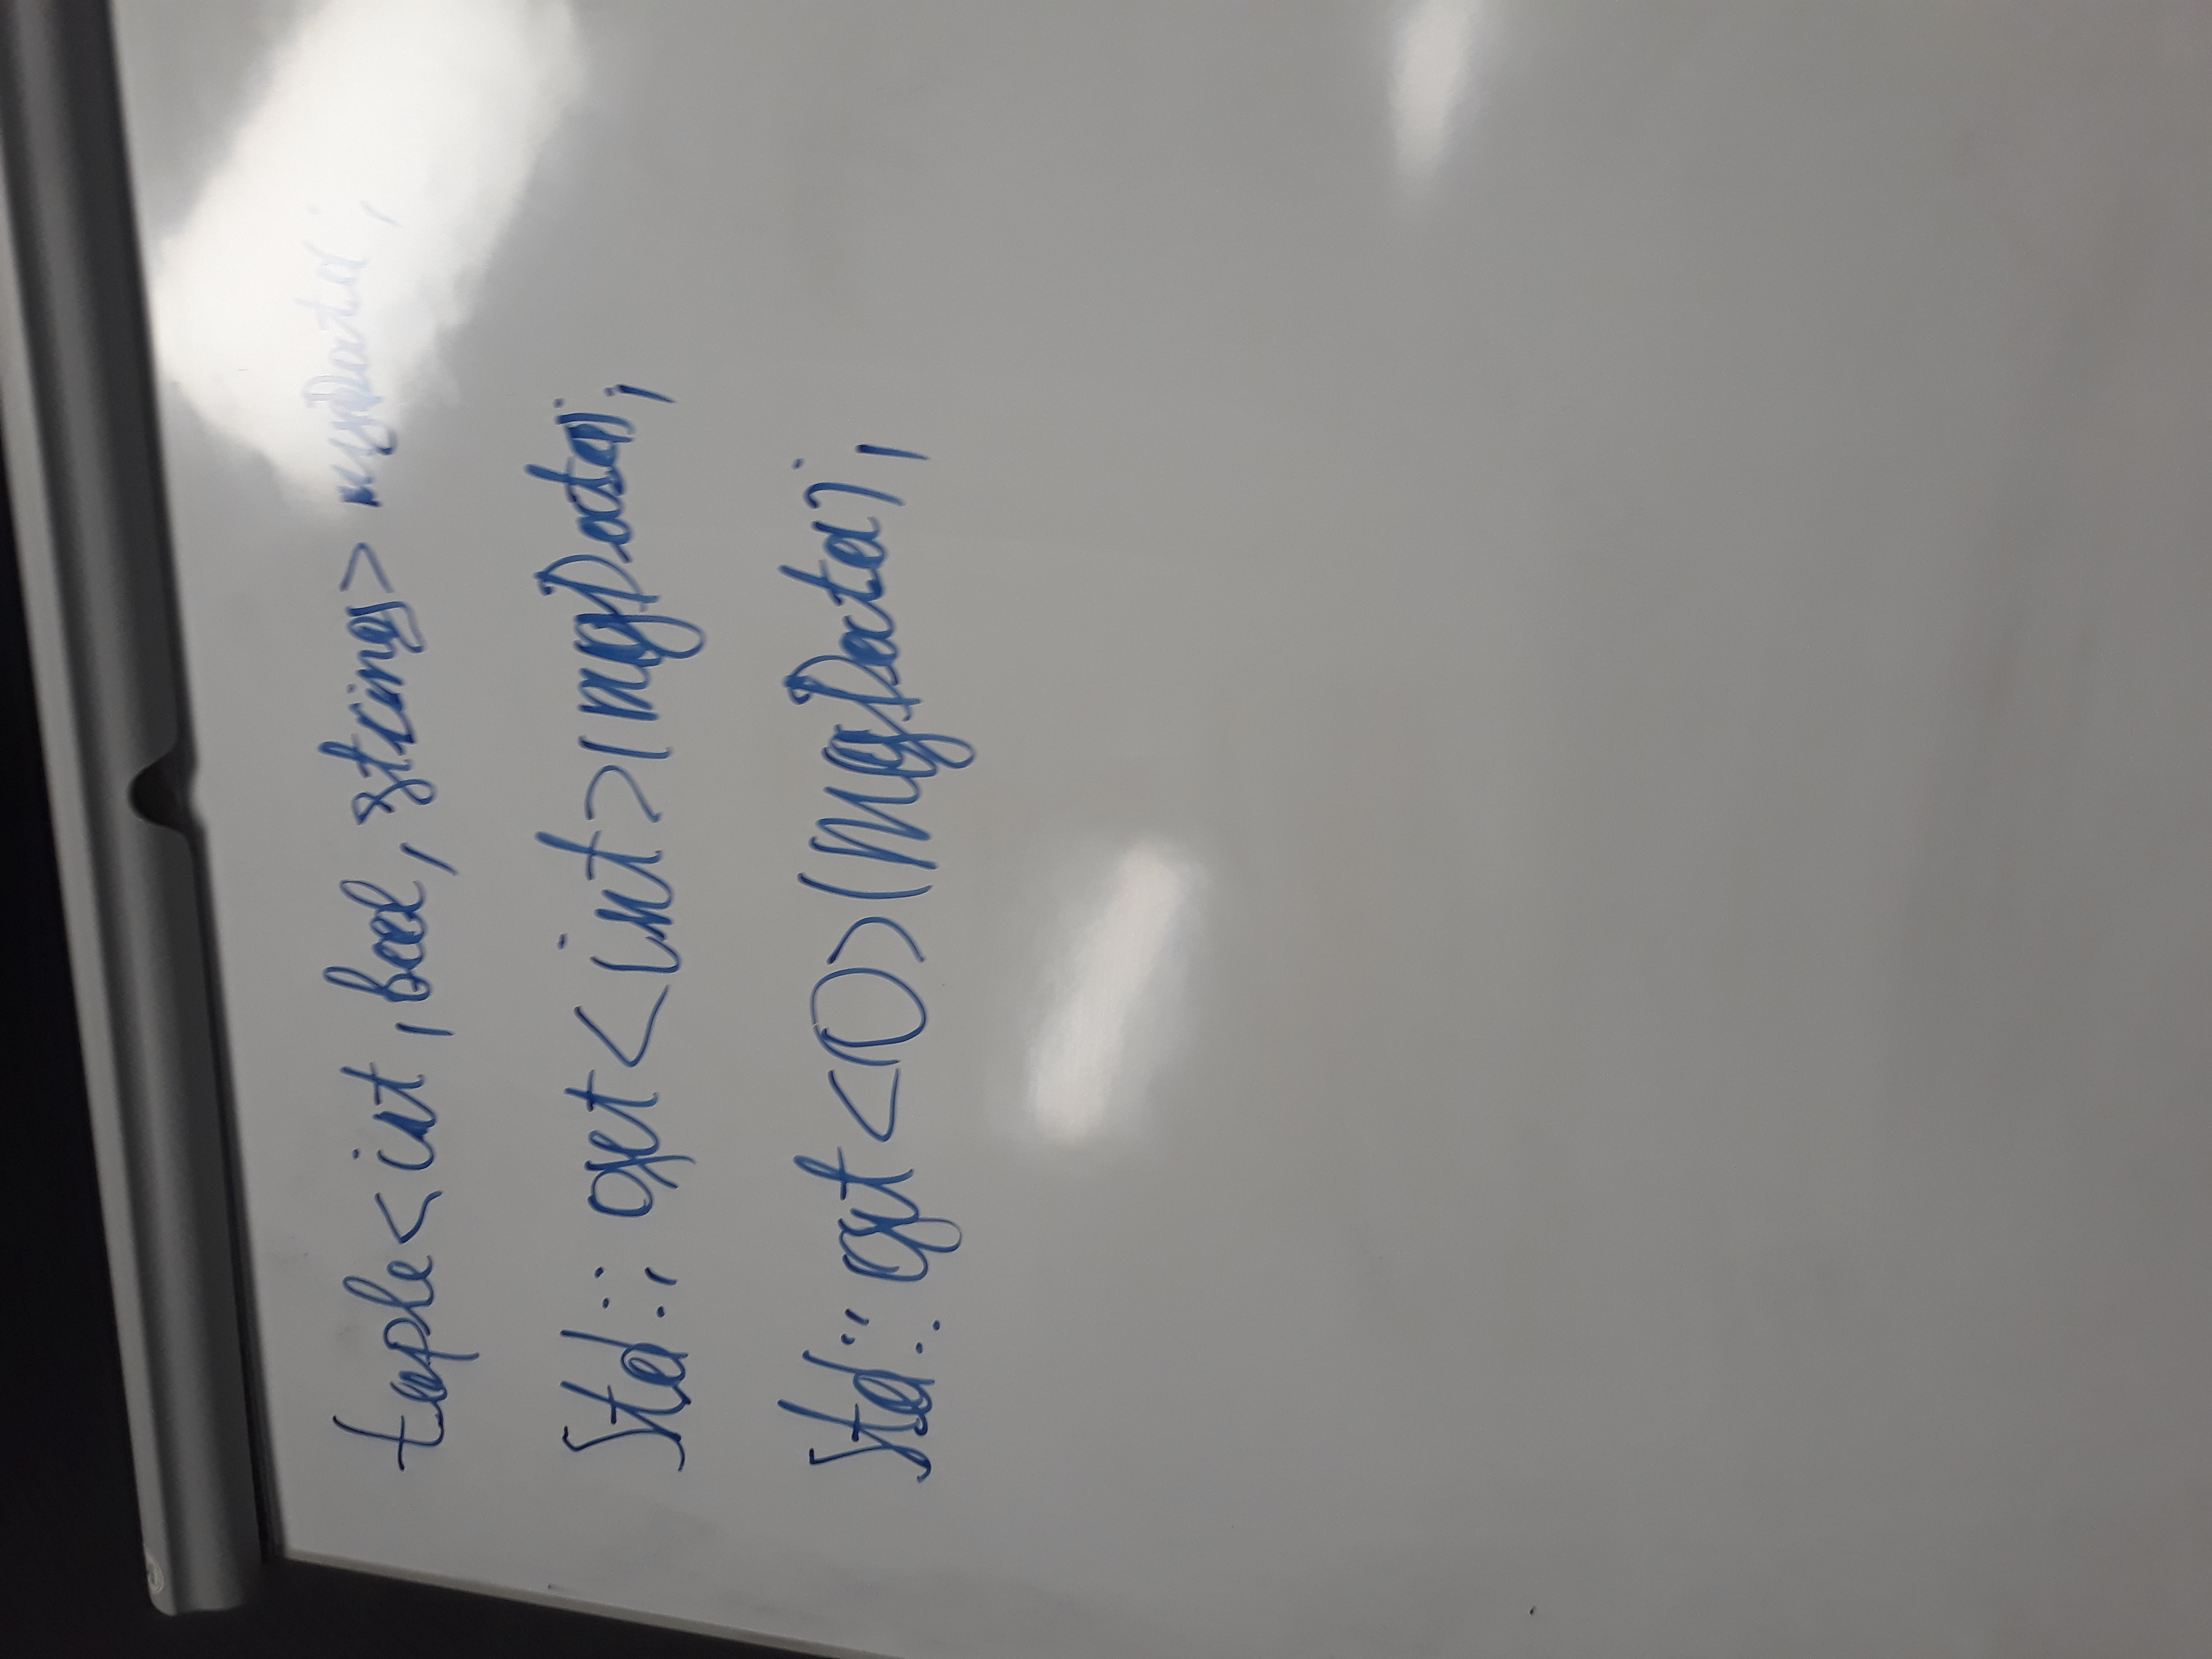 tuple<int, bool, string> myData;
Std::get<int>(myData);
Std::get<0>(MyData);